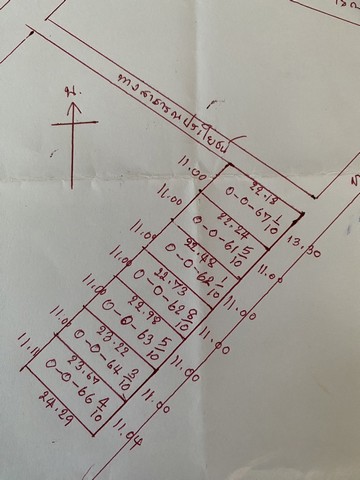 ทางสาธารณประโยชน์
น.
11.00
22.13
0-0-67 1/10
13.30
11.00
22.24
0-0-61 5/10
11.00
11.00
22.48
0-0-62 1/10
11.00
11.00
22.73
0-0-62 8/10
11.00
11.00
22.98
0-0-63 5/10
11.00
11.00
23.22
0-0-64 3/10
11.00
11.11
23.67
0-0-66 4/10
11.04
24.29